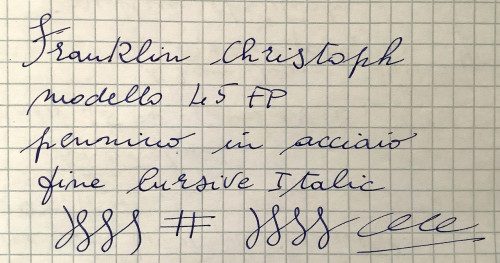 Franklin Christoph
modello 45 FP
pennino in acciaio
fine cursive Italic
#